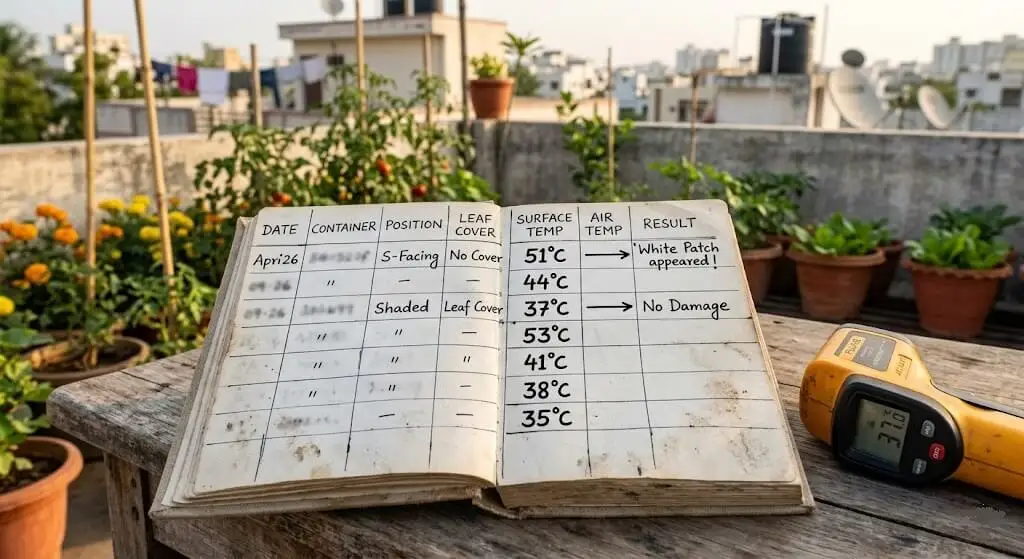 DATE CONTAINER POSITION LEAF COVER SURFACE TEMP AIR TEMP RESULT
Apri26 S-Facing No Cover 51°C → 'White Patch appeared!
09-26 " – – 44°C
09-26 Shaded Leaf Cover 37°C → No Damage
" " 53°C
" " " 41°C
" " 38°C
– – 35°C